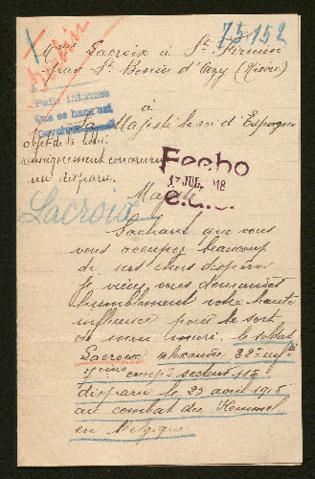 75.152
Mme Lacroix à St Firmin
par St Benin d'Azy (Nièvre)
Pedir informes
Que se haga así
à
Sa Majesté le roi d'Espagne
objet de la lettre
renseignement concernant
un disparu.
Fecho
17 JUL. 1918
Majesté
Lacroix
Sachant que vous
vous occupez beaucoup
de nos chers disparus
Je viens vous demander
humblement votre haute
influence pour le sort
de mon mari. le soldat
Lacroix Alexandre 22e infie
compie secteur 115
disparu le 25 avril 1918
au combat du Kemmel
en Belgique